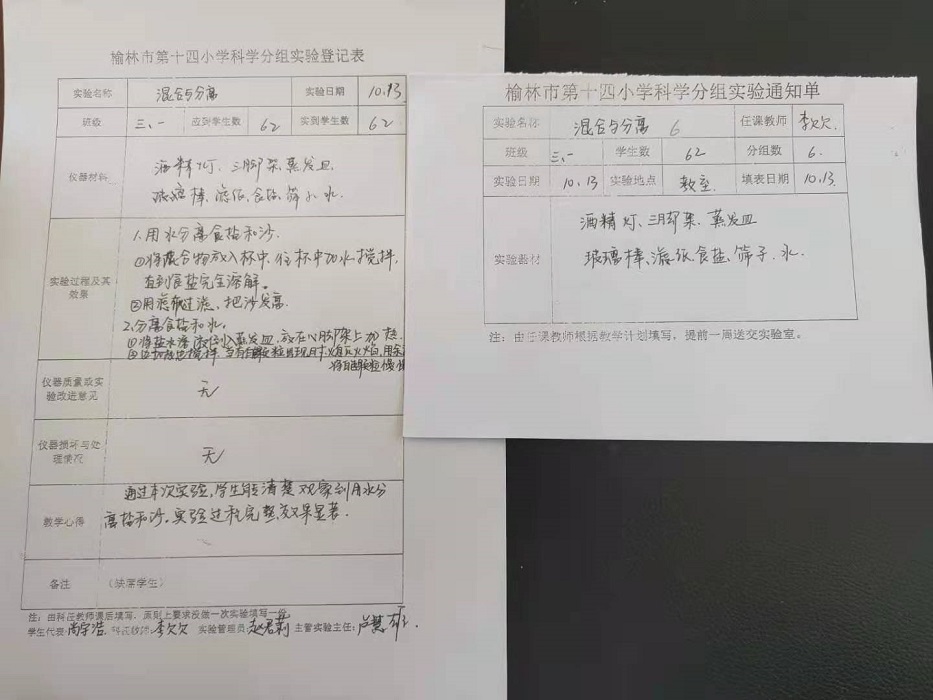 榆林市第十四小学科学分组实验登记表
实验名称 混合与分离 实验日期 10.13
班级 三、一 应到学生数 62 实到学生数 62
仪器材料
酒精灯、三脚架、蒸发皿、
玻璃棒、滤纸、食盐、筛子、水.
实验过程及其
效果
1.用水分离食盐和沙.
①将混合物放入杯中,往杯中加水搅拌,
直到食盐完全溶解。
②用滤纸过滤,把沙分离.
2.分离食盐和水。
①将盐水溶液倒入蒸发皿,放在三脚架上加热.
仪器质量或实
验改进意见
无
仪器损坏与处
理情况
无
教学心得
通过本次实验,学生能清楚观察到用水分
离盐和沙。实验过程完整,效果显著.
备注 (缺席学生)
注:由科任教师课后填写,原则上要求没做一次实验填写一份
学生代表: 尚宇浩. 科任教师: 李欠欠 实验管理员: 赵君莉 主管实验主任:
榆林市第十四小学科学分组实验通知单
实验名称 混合与分离 6 任课教师 李欠欠
班级 三、一 学生数 62 分组数 6.
实验日期 10.13 实验地点 教室. 填表日期 10.13.
实验器材
酒精灯、三脚架、蒸发皿
玻璃棒、滤纸、食盐、筛子、水.
注:由任课教师根据教学计划填写,提前一周送交实验室。